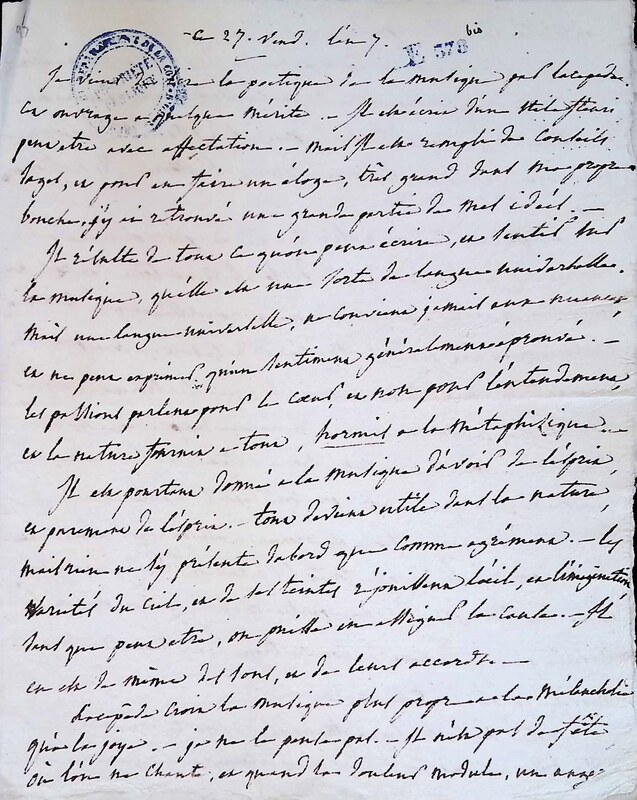 ce 27. vend. l'an 7.
E 378 bis
Je viens de lire la poëtique de la musique par Lacepede.
Cet ouvrage a quelque mérite. - Il est écrit d'un stile fleuri
peut etre avec affectation. - mais il est rempli de conseils
sages, et pour en faire un éloge, très grand dans ma propre
bouche, j'y ai rétrouvé une grande partie de mes idées. -
Il résulte de tout ce qu'on peut écrire, et sentir sur
la musique, qu'elle est une sorte de langue universelle.
mais une langue universelle, ne convient jamais aux nuances
et ne peut exprimer qu'un sentiment généralement éprouvé. -
les passions parlent pour le coeur, et non pour l'entendement,
et la nature fournit a tout, hormis a la métaphizique. -
Il est pourtant donné a la musique d'avoir de l'esprit,
et purement de l'esprit. - tout devient utile dans la nature,
mais rien ne s'y présente d'abord que comme agrément. - les
variétés du ciel, et de ses teintes réjouissent l'oeil, et l'imagination
sans que peut etre, on puisse en assigner la cause. - Il
en est de même des sons, et de leurs accords. -
Lacepede croit la musique plus propre a la mélancholie
qu'a la joye. - je ne le pense pas. - Il n'est pas de fête
où l'on ne chante, et quand la douleur module, un ange